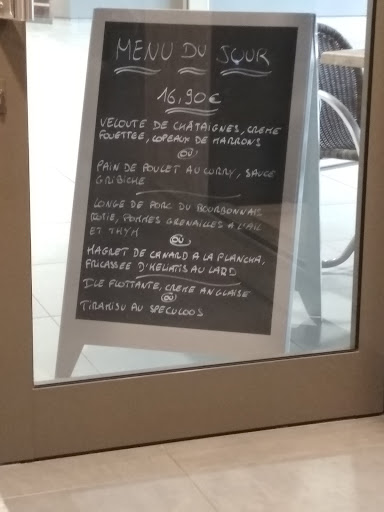 MENU DU JOUR
16,90€
VELOUTE DE CHÂTAIGNES, CREME
FOUETTEE, COPEAUX DE MARRONS
OU
PAIN DE POULET AU CURRY, SAUCE
GRIBICHE
LONGE DE PORC DU BOURBONNAIS
ROTIE, POMMES GRENAILLES A L'AIL
ET THYM
OU
MAGRET DE CANARD A LA PLANCHA,
FRICASSEE D'HELIATIS AU LARD
ILE FLOTTANTE, CREME ANGLAISE
OU
TIRAMISU AU SPECULOOS